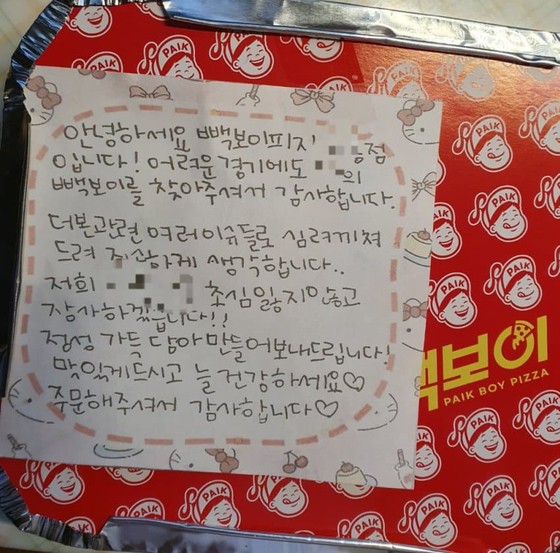 안녕하세요 빽보이피자 점
입니다! 어려운 경기에도 의
빽보이를 찾아주셔서 감사합니다.
더본관련 여러이슈들로 심려끼쳐
드려 죄송하게 생각합니다..
저희 초심 잃지않고
장사하겠습니다!!
정성 가득 담아 만들어보내드립니다!
맛있게드시고 늘 건강하세요♡
주문해주셔서 감사합니다♡
백보이
PAIK BOY PIZZA
PAIK